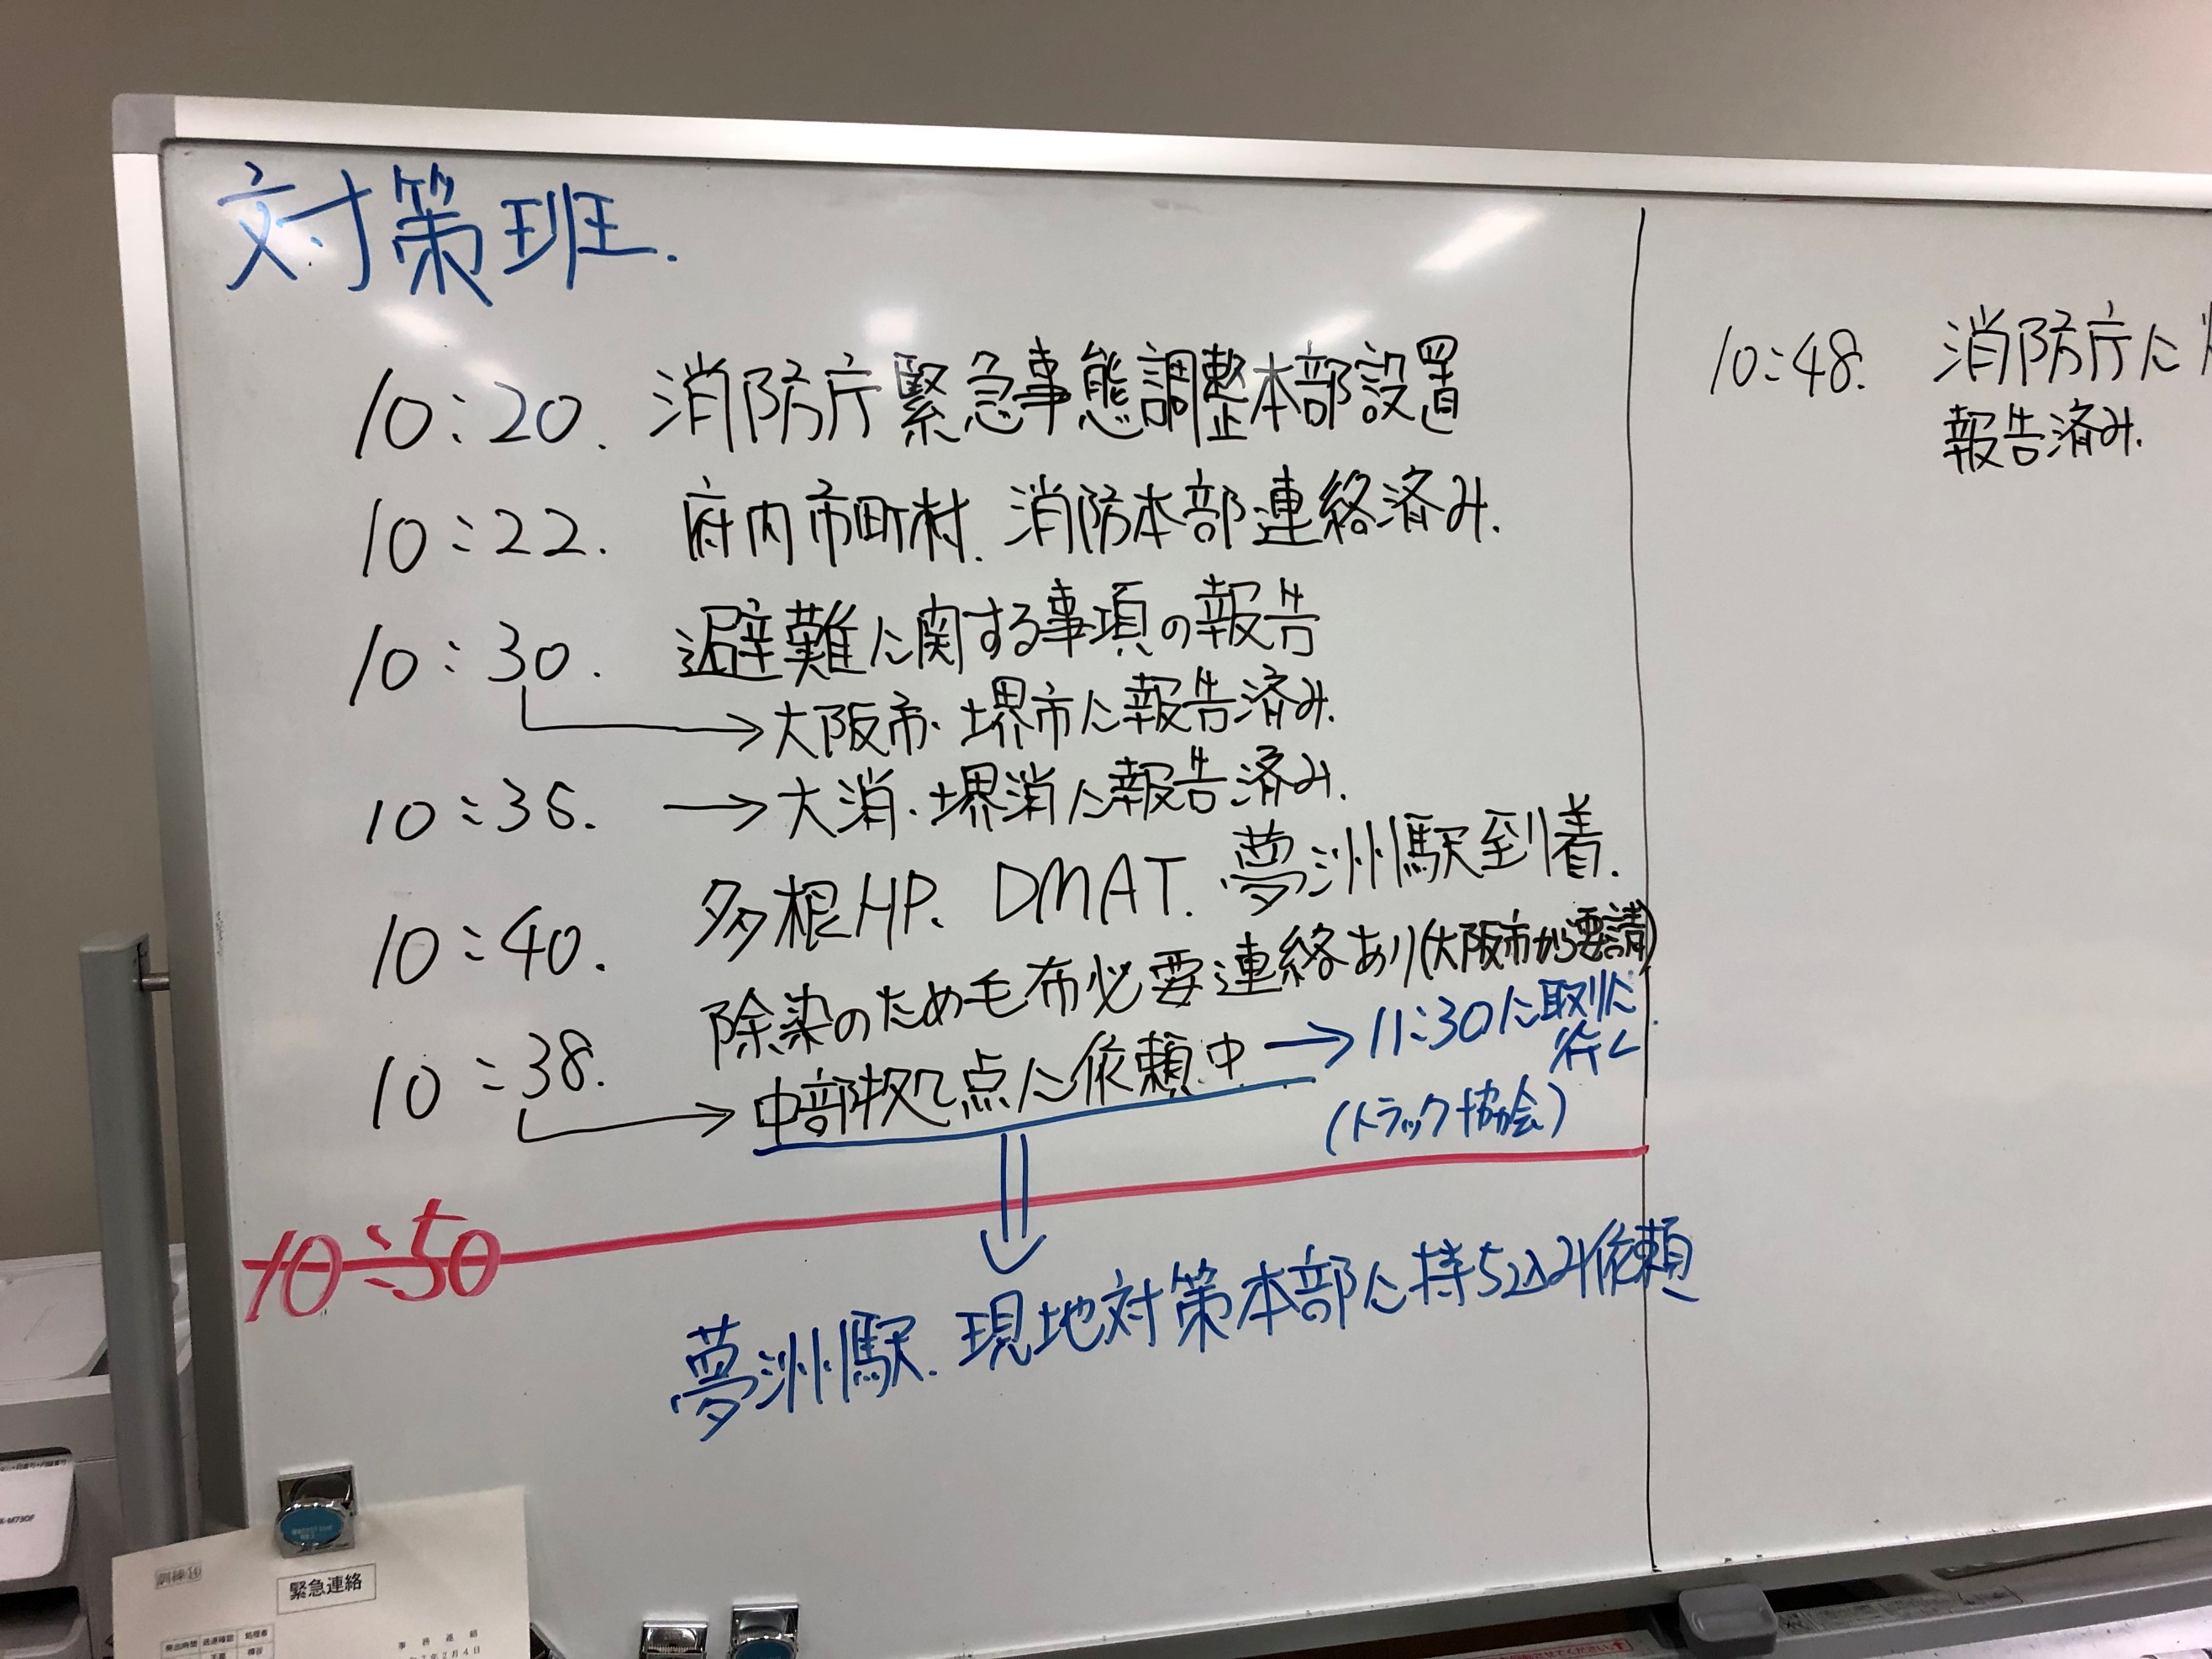 対策班.
10:20. 消防庁緊急事態調整本部設置
10:22. 府内市町村. 消防本部連絡済み.
10:30. 避難に関する事項の報告
→大阪市・堺市に報告済み.
10:35. →大消・堺消に報告済み.
10:40. 多根HP、DMAT. 夢洲駅到着.
除染のため毛布必要連絡あり(大阪市から要請)
10:38. →中部拠点に依頼中 →11:30に取りに
行く
(トラック協会)
10:50
夢洲駅. 現地対策本部に持ち込み依頼
10:48. 消防庁に
報告済み.
緊急連絡
事務連絡
年2月4日